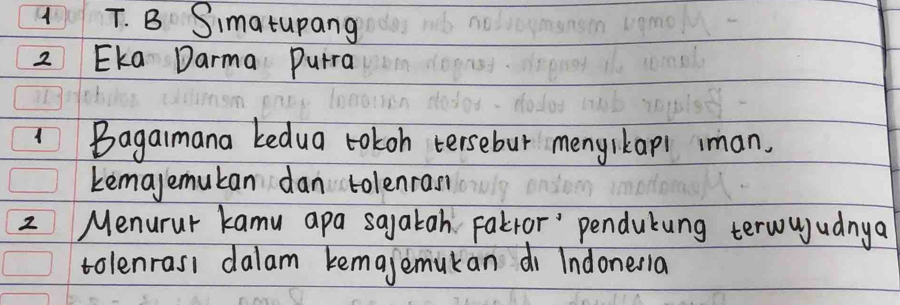 1 T. B Simatupang
2 Eka Darma Putra
1 Bagaimana kedua tokoh tersebut menyikapi iman,
kemajemukan dan tolenrasi
2 Menurut kamu apa sajakah faktor' pendukung terwujudnya
tolenrasi dalam kemajemukan di Indonesia